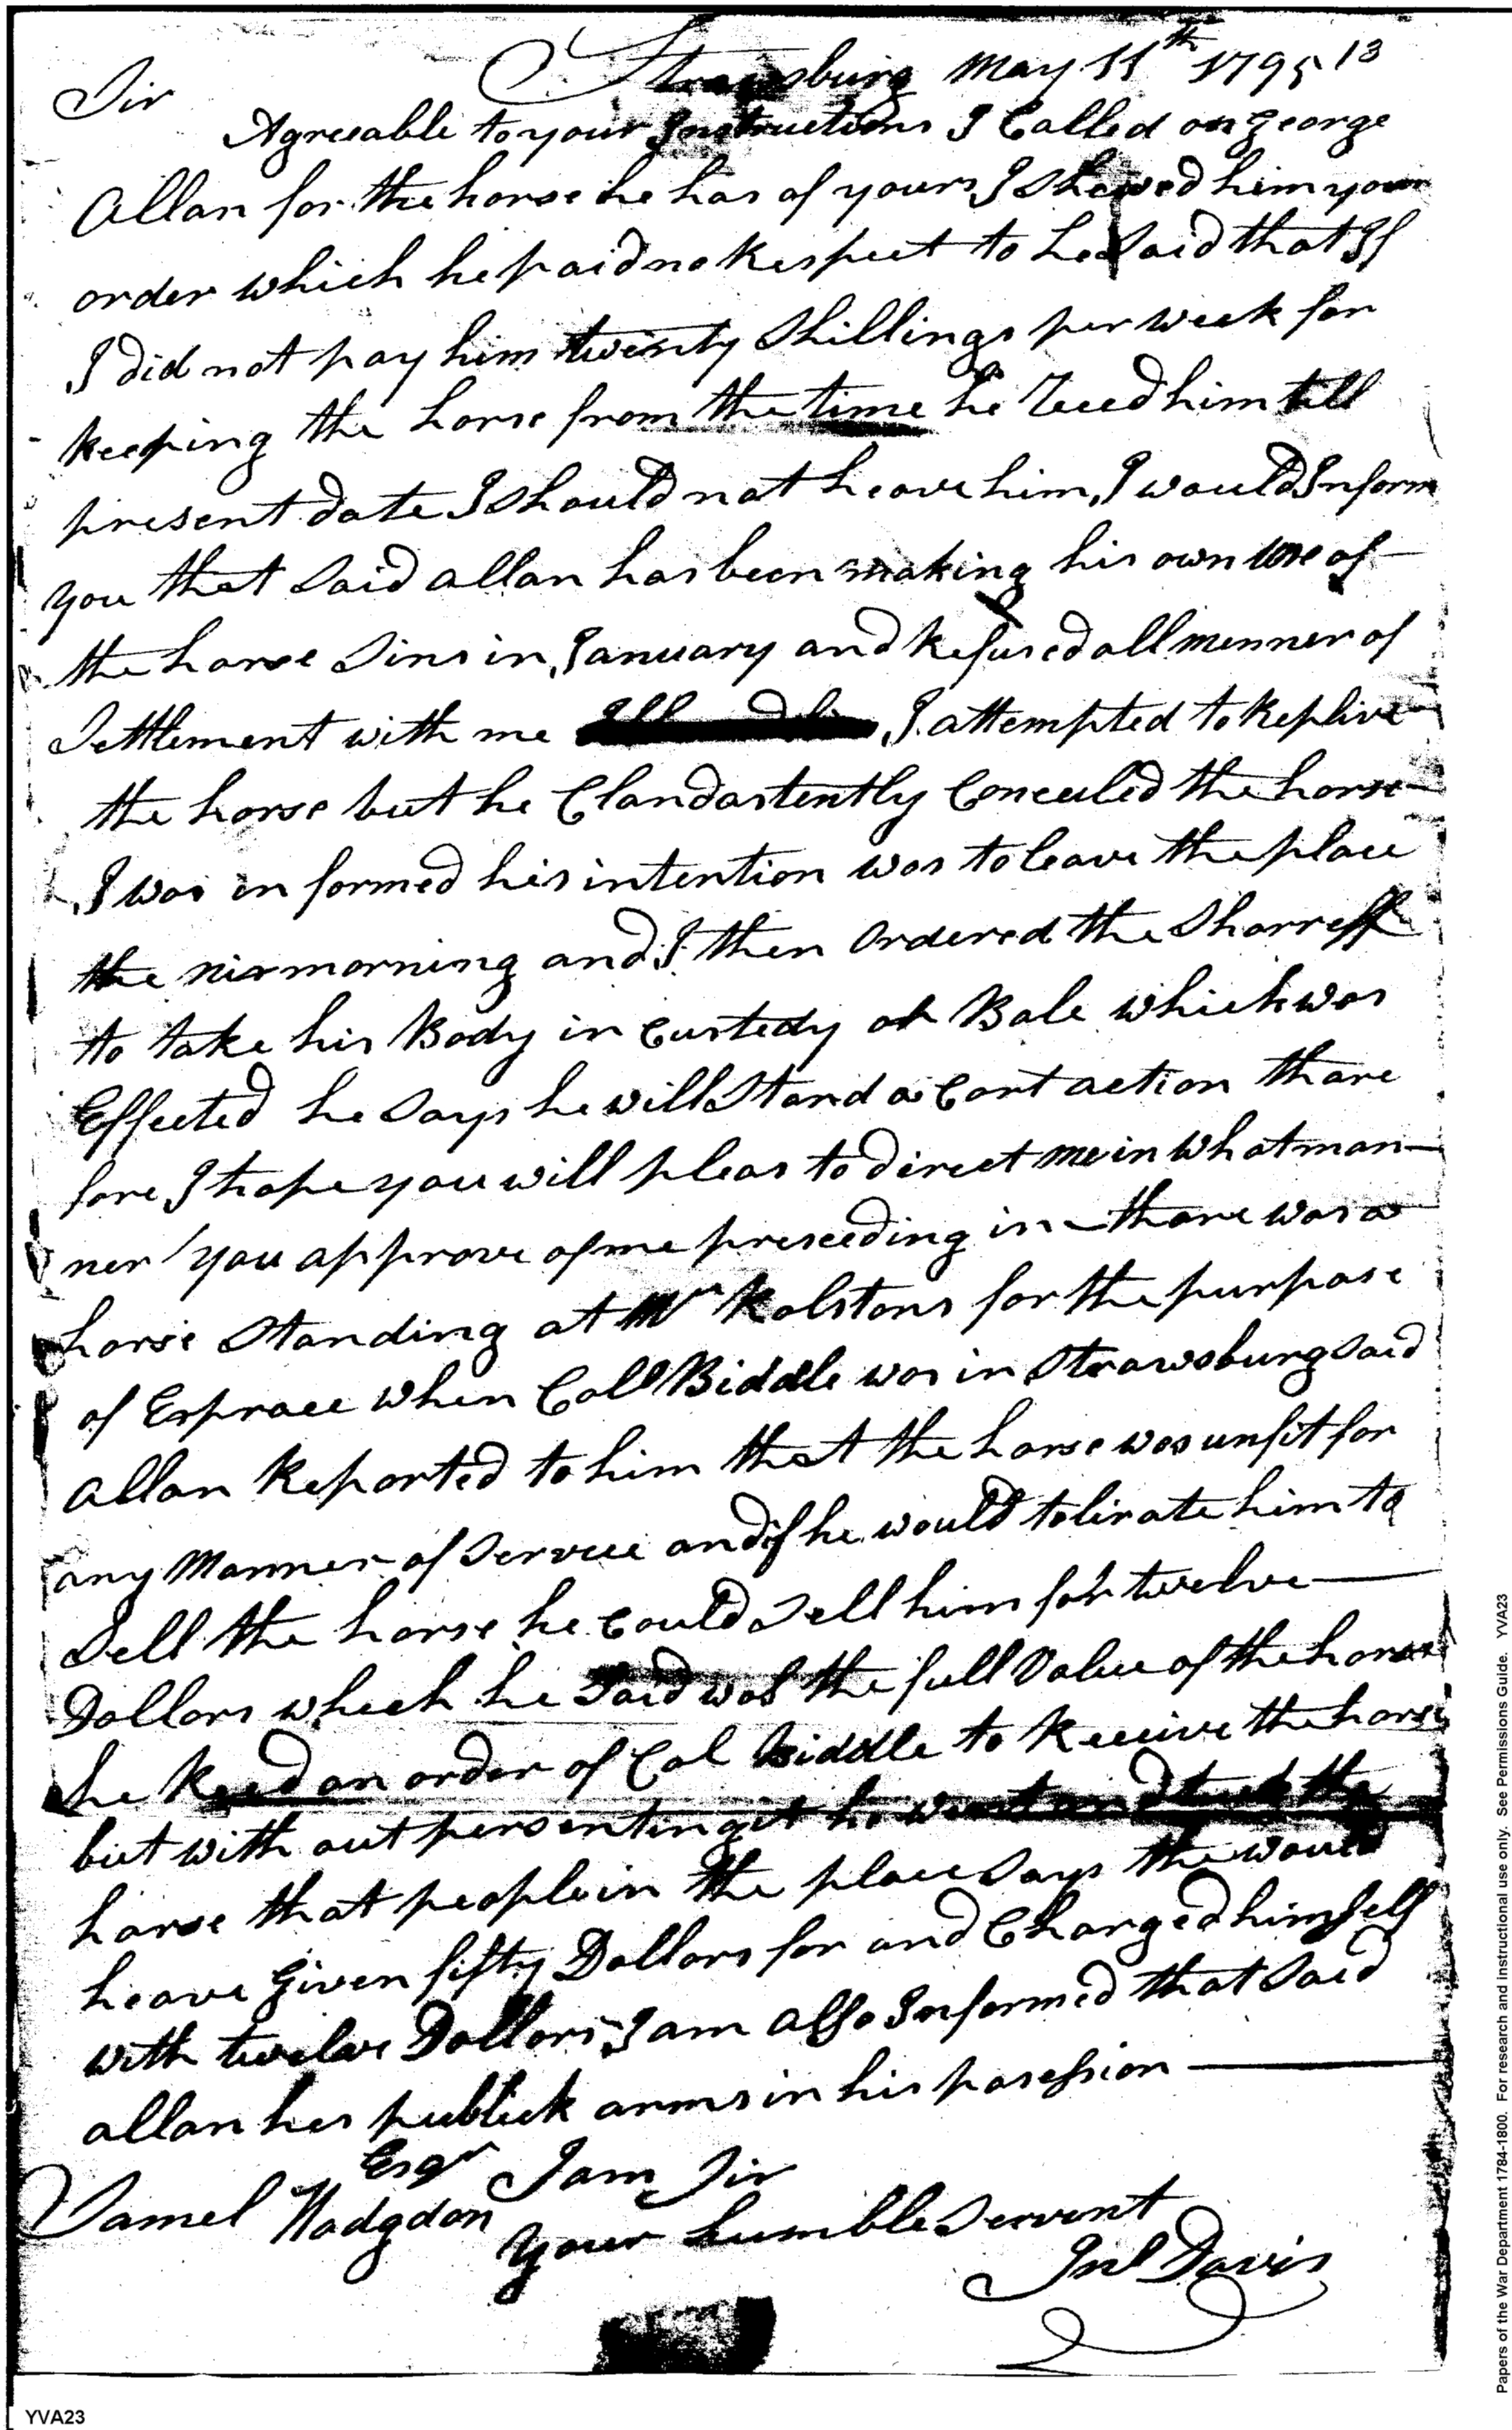 Strawsburg May 11th 1795 13
Sir
Agreeable to your Instructions I Called on george
Allan for the horse he has of yours I Shewed him your
order which he paid no Respect to he Said that If
I did not pay him twenty Shillings per week for
keeping the horse from the time he Reced him till
present date I Should not heave him, I would Inform
you that Said allan has been making his own use of
the horse Sins in January and Refused all menner of
Settlement with me I attempted to Replive
the horse but he Clandastently Conceuled the horse
I was informed his intention was to leave the place
the nixmorning and I then Ordered the Sharreff
to take his Body in Custedy or Bale which was
Effected he Says he will Stand a Cort action thare
fore I hope you will pleas to direct me in what man-
ner you approve of me preseeding in thare was a
horse Standing at Mr Rolstons for the purpose
of Exprace when Coll Biddle was in Strawsburg Said
allan Reported to him that the horse was unfit for
any Manner of Service and if he would tolirate him to
Sell the horse he Could Sell him for twelve
Dollars which he Said was the full Value of the horse
he Reced an order of Col Biddle to Receive the horse
but with out persenting it he went and tuck the
horse that people in the place Says the would
heave Given fifty Dollars for and Charged himself
with twelve Dollars I am also Informed that Said
allan hes publick arms in his posession
Esqr I am Sir
Samel Hodgdon your humble Servent
Jnl Davis
YVA23
Papers of the War Department 1784-1800. For research and instructional use only. See Permissions Guide. YVA23